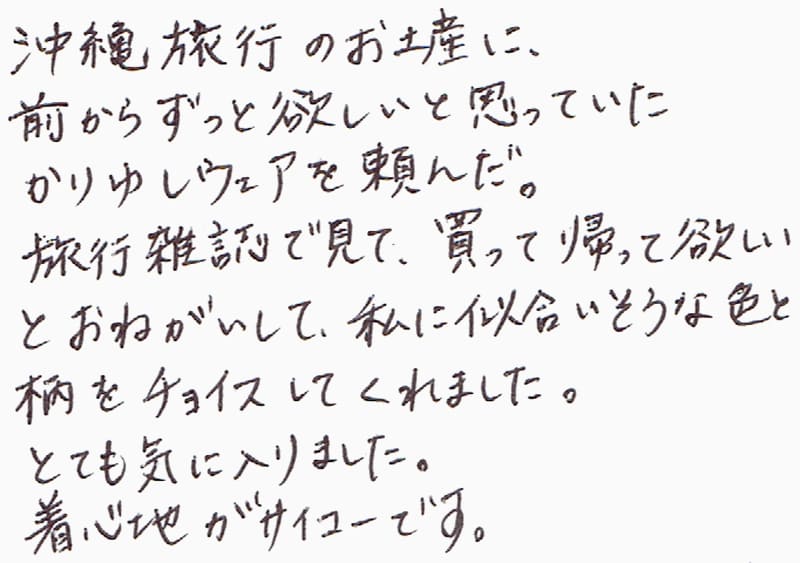 沖縄旅行のお土産に、
前からずっと欲しいと思っていた
かりゆしウェアを頼んだ。
旅行雑誌で見て、買って帰って欲しい
とおねがいして、私に似合いそうな色と
柄をチョイスしてくれました。
とても気に入りました。
着心地がサイコーです。